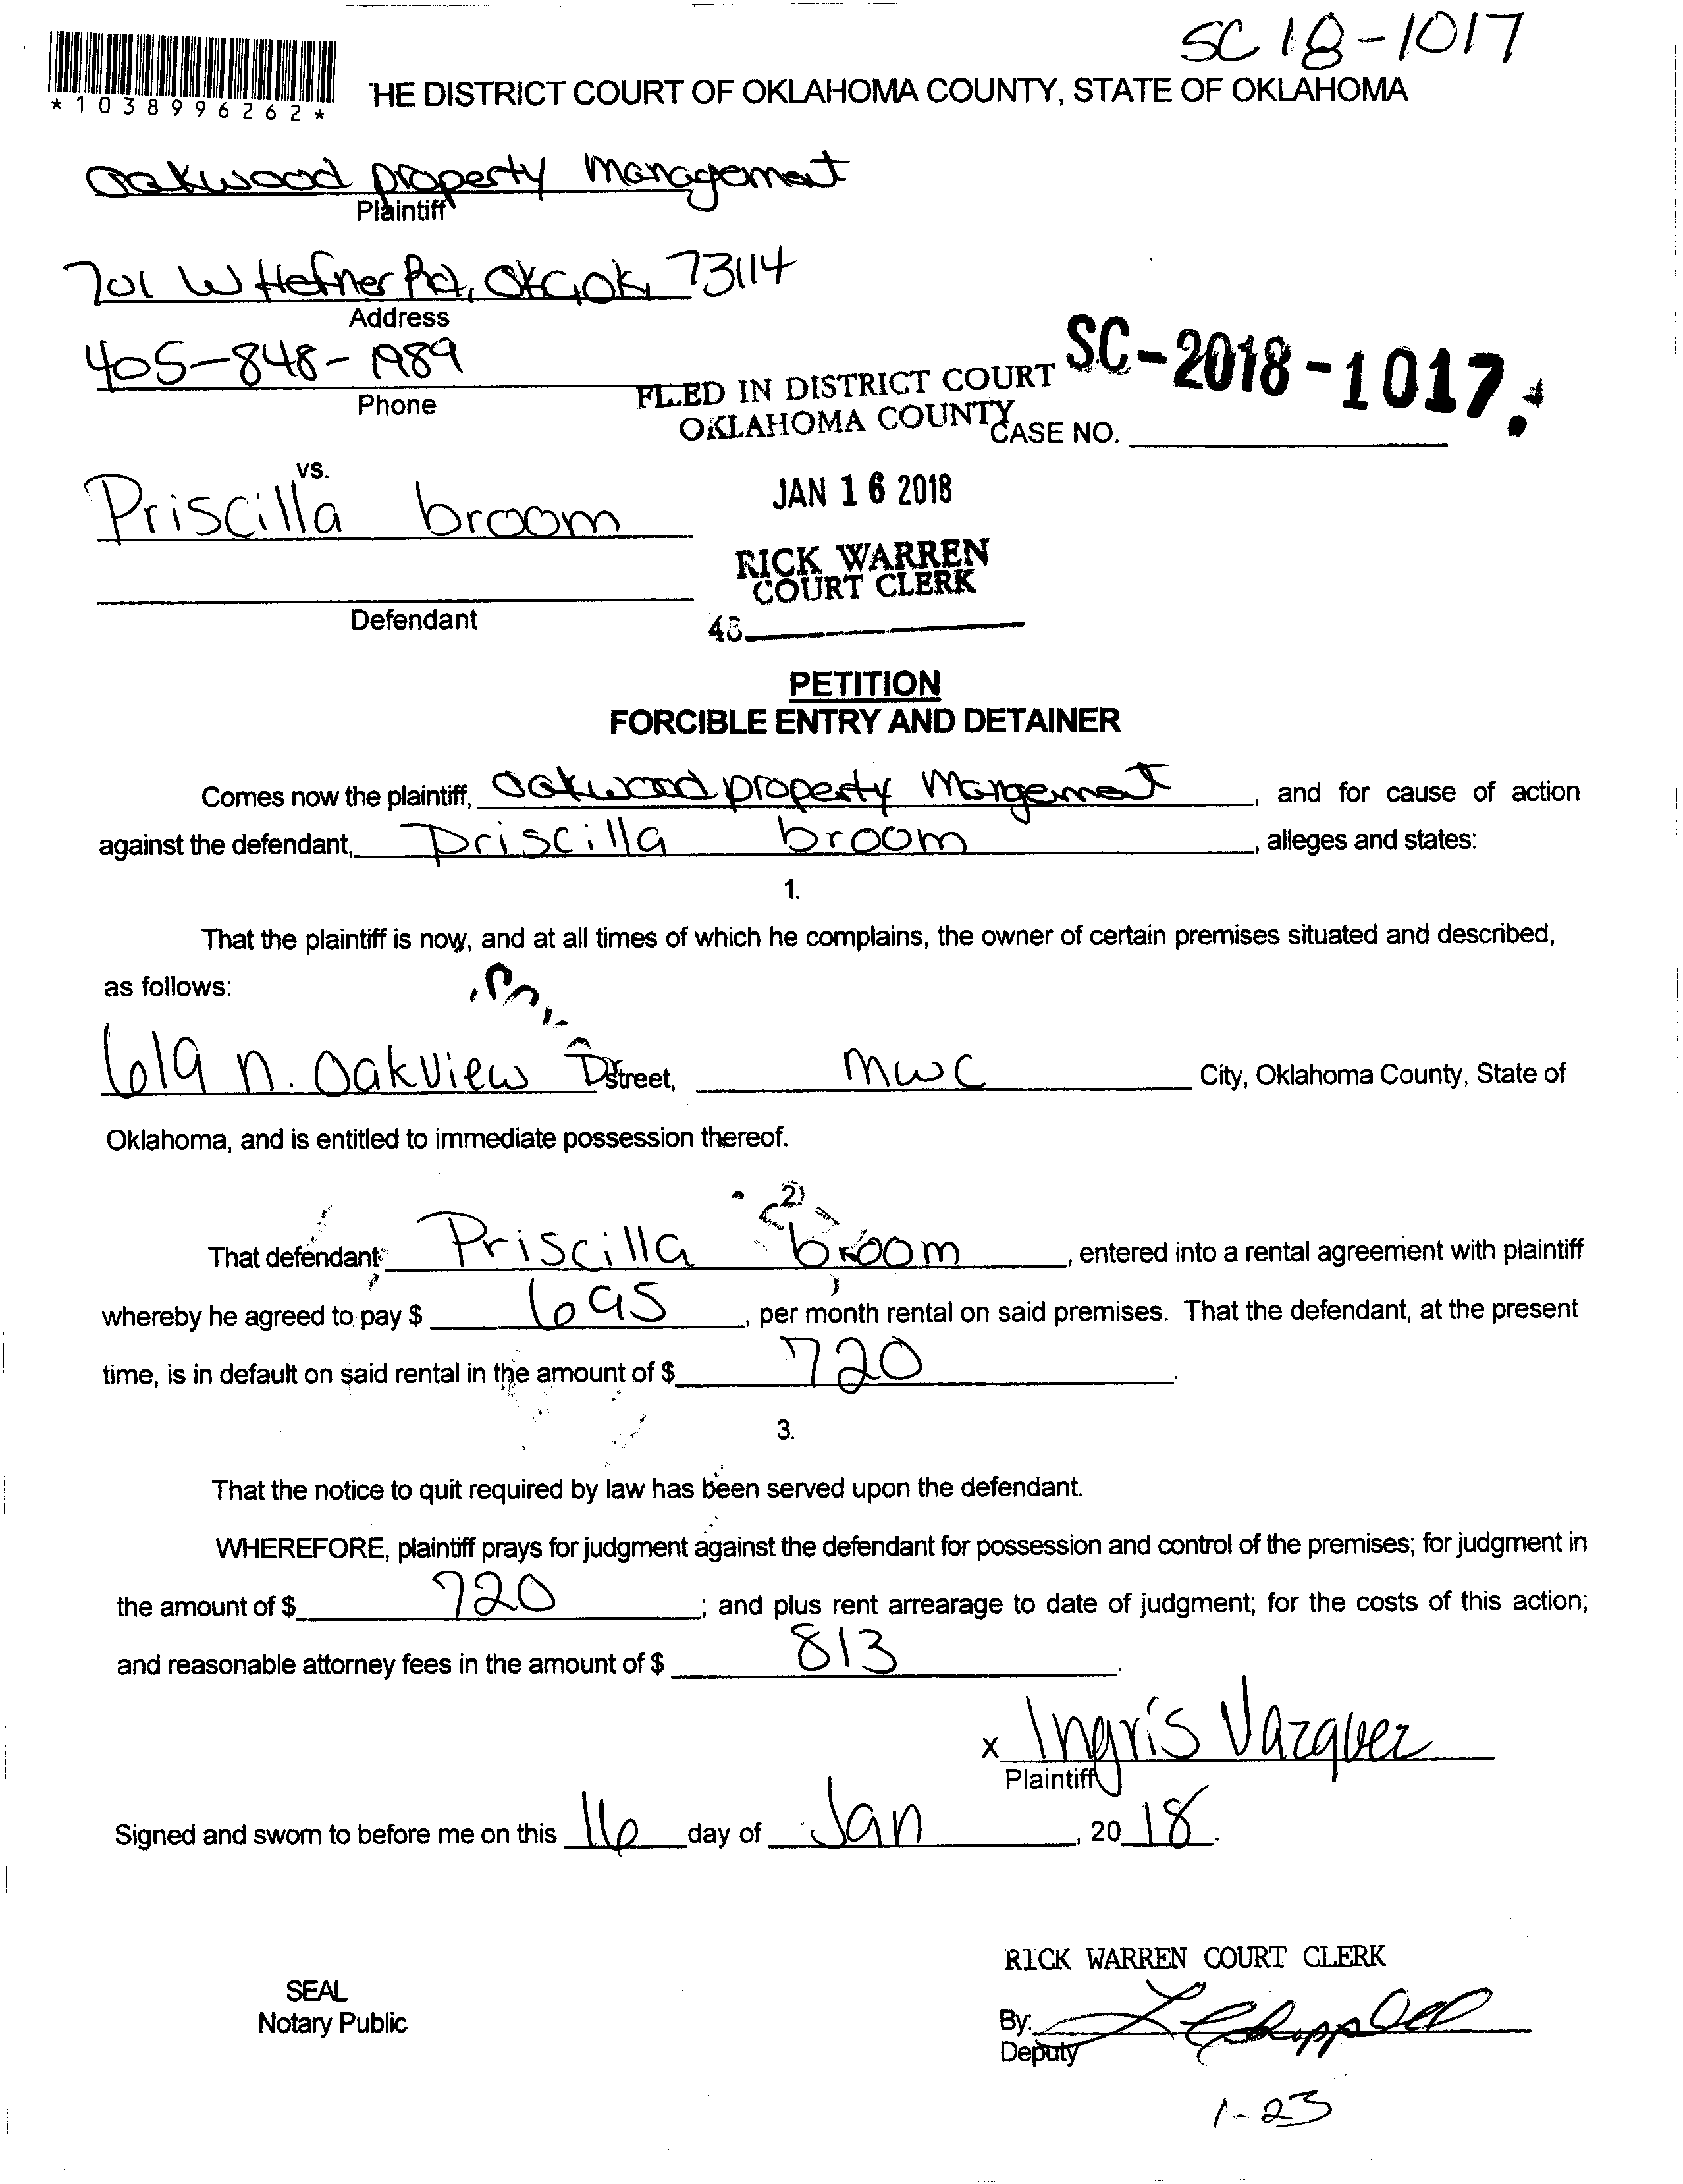 SC 18-1017
*1038996262*
THE DISTRICT COURT OF OKLAHOMA COUNTY, STATE OF OKLAHOMA
Oakwood property Management
Plaintiff
701 W Hefner Rd, OKC, OK, 73114
Address
405-848-1989
Phone
FILED IN DISTRICT COURT
OKLAHOMA COUNTY
SC-2018-1017
CASE NO.
vs.
Priscilla broom
JAN 16 2018
RICK WARREN
COURT CLERK
Defendant
48
PETITION
FORCIBLE ENTRY AND DETAINER
Comes now the plaintiff, Oakwood property Mangement, and for cause of action
against the defendant, Priscilla broom, alleges and states:
1.
That the plaintiff is now, and at all times of which he complains, the owner of certain premises situated and described,
as follows:
619 n. Oakview D Street, MWC City, Oklahoma County, State of
Oklahoma, and is entitled to immediate possession thereof.
2.
That defendant, Priscilla broom, entered into a rental agreement with plaintiff
whereby he agreed to pay $ 695, per month rental on said premises. That the defendant, at the present
time, is in default on said rental in the amount of $ 720.
3.
That the notice to quit required by law has been served upon the defendant.
WHEREFORE, plaintiff prays for judgment against the defendant for possession and control of the premises; for judgment in
the amount of $ 720; and plus rent arrearage to date of judgment; for the costs of this action;
and reasonable attorney fees in the amount of $ 813.
x Ingris Vazquez
Plaintiff
Signed and sworn to before me on this 16 day of Jan, 2018.
RICK WARREN COURT CLERK
SEAL
Notary Public
By: L Chappell
Deputy
1-23